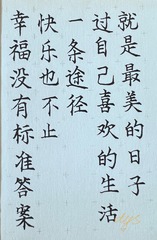 幸福没有标准答案
快乐也不止
一条途径
过自己喜欢的生活
就是最美的日子